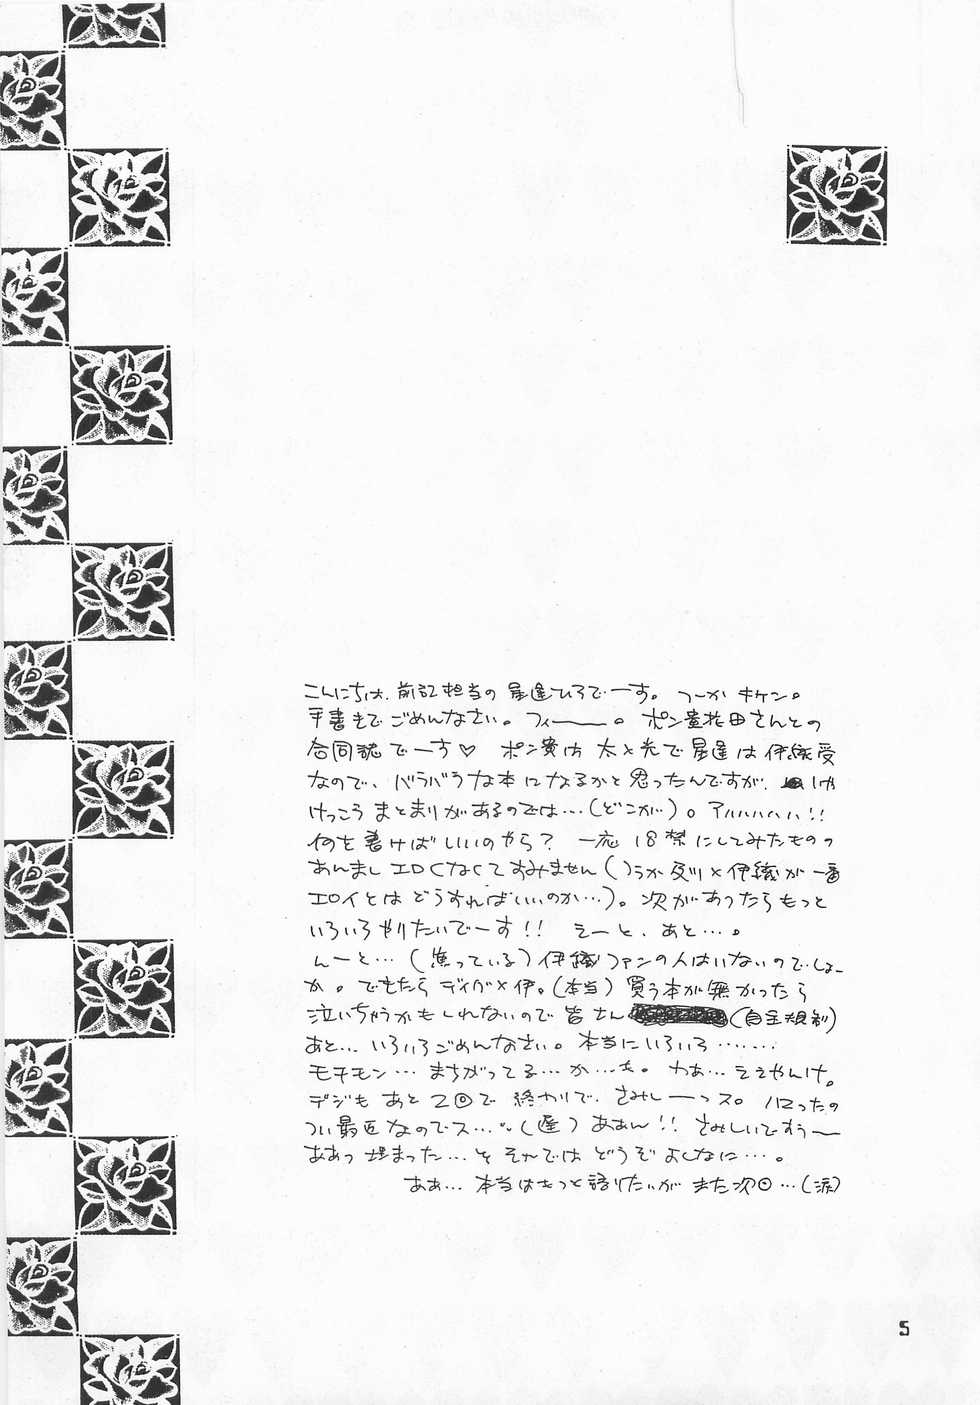 こんにちは、前記担当の星逢ひろでーす。つーか キケン。
手書きでごめんなさい。フィーー。ポン貴花田さんとの
合同誌でーす♡ ポン貴方 太と光で星逢は伊織受
なので、バラバラな本になるかと思ったんですが、
けっこう まとまりがあるのでは…(どこが)。アハハハハハ!!
何を書けばいいのやら? 一応 18禁にしてみたものの
あんまし エロくなくてすみません(つうか 及川×伊織が 一番
エロイとは どうすればいいのか…)。次があったらもっと
いろいろやりたいでーす!! えーと、あと…。
んーと…(焦っている)伊織ファンの人はいないのでしょー
か。でもたら ディガ×伊。(本当) 買う本が無かったら
泣いちゃうかもしれないので 皆さん (自主規制)
あと… いろいろごめんなさい。本当にいろいろ……
モチモン… まちがってる…か…も。わあ… ええやんけ。
デジも あと 2回で 終わりで、さみしーーっス。ハマったの
つい最近なのでス…。(遅) ああん!! さみしいですぅー
ああっ 埋まった…と それでは どうぞ よしなに…。
ああ… 本当はもっと語りたいが また次回…(涙)
5